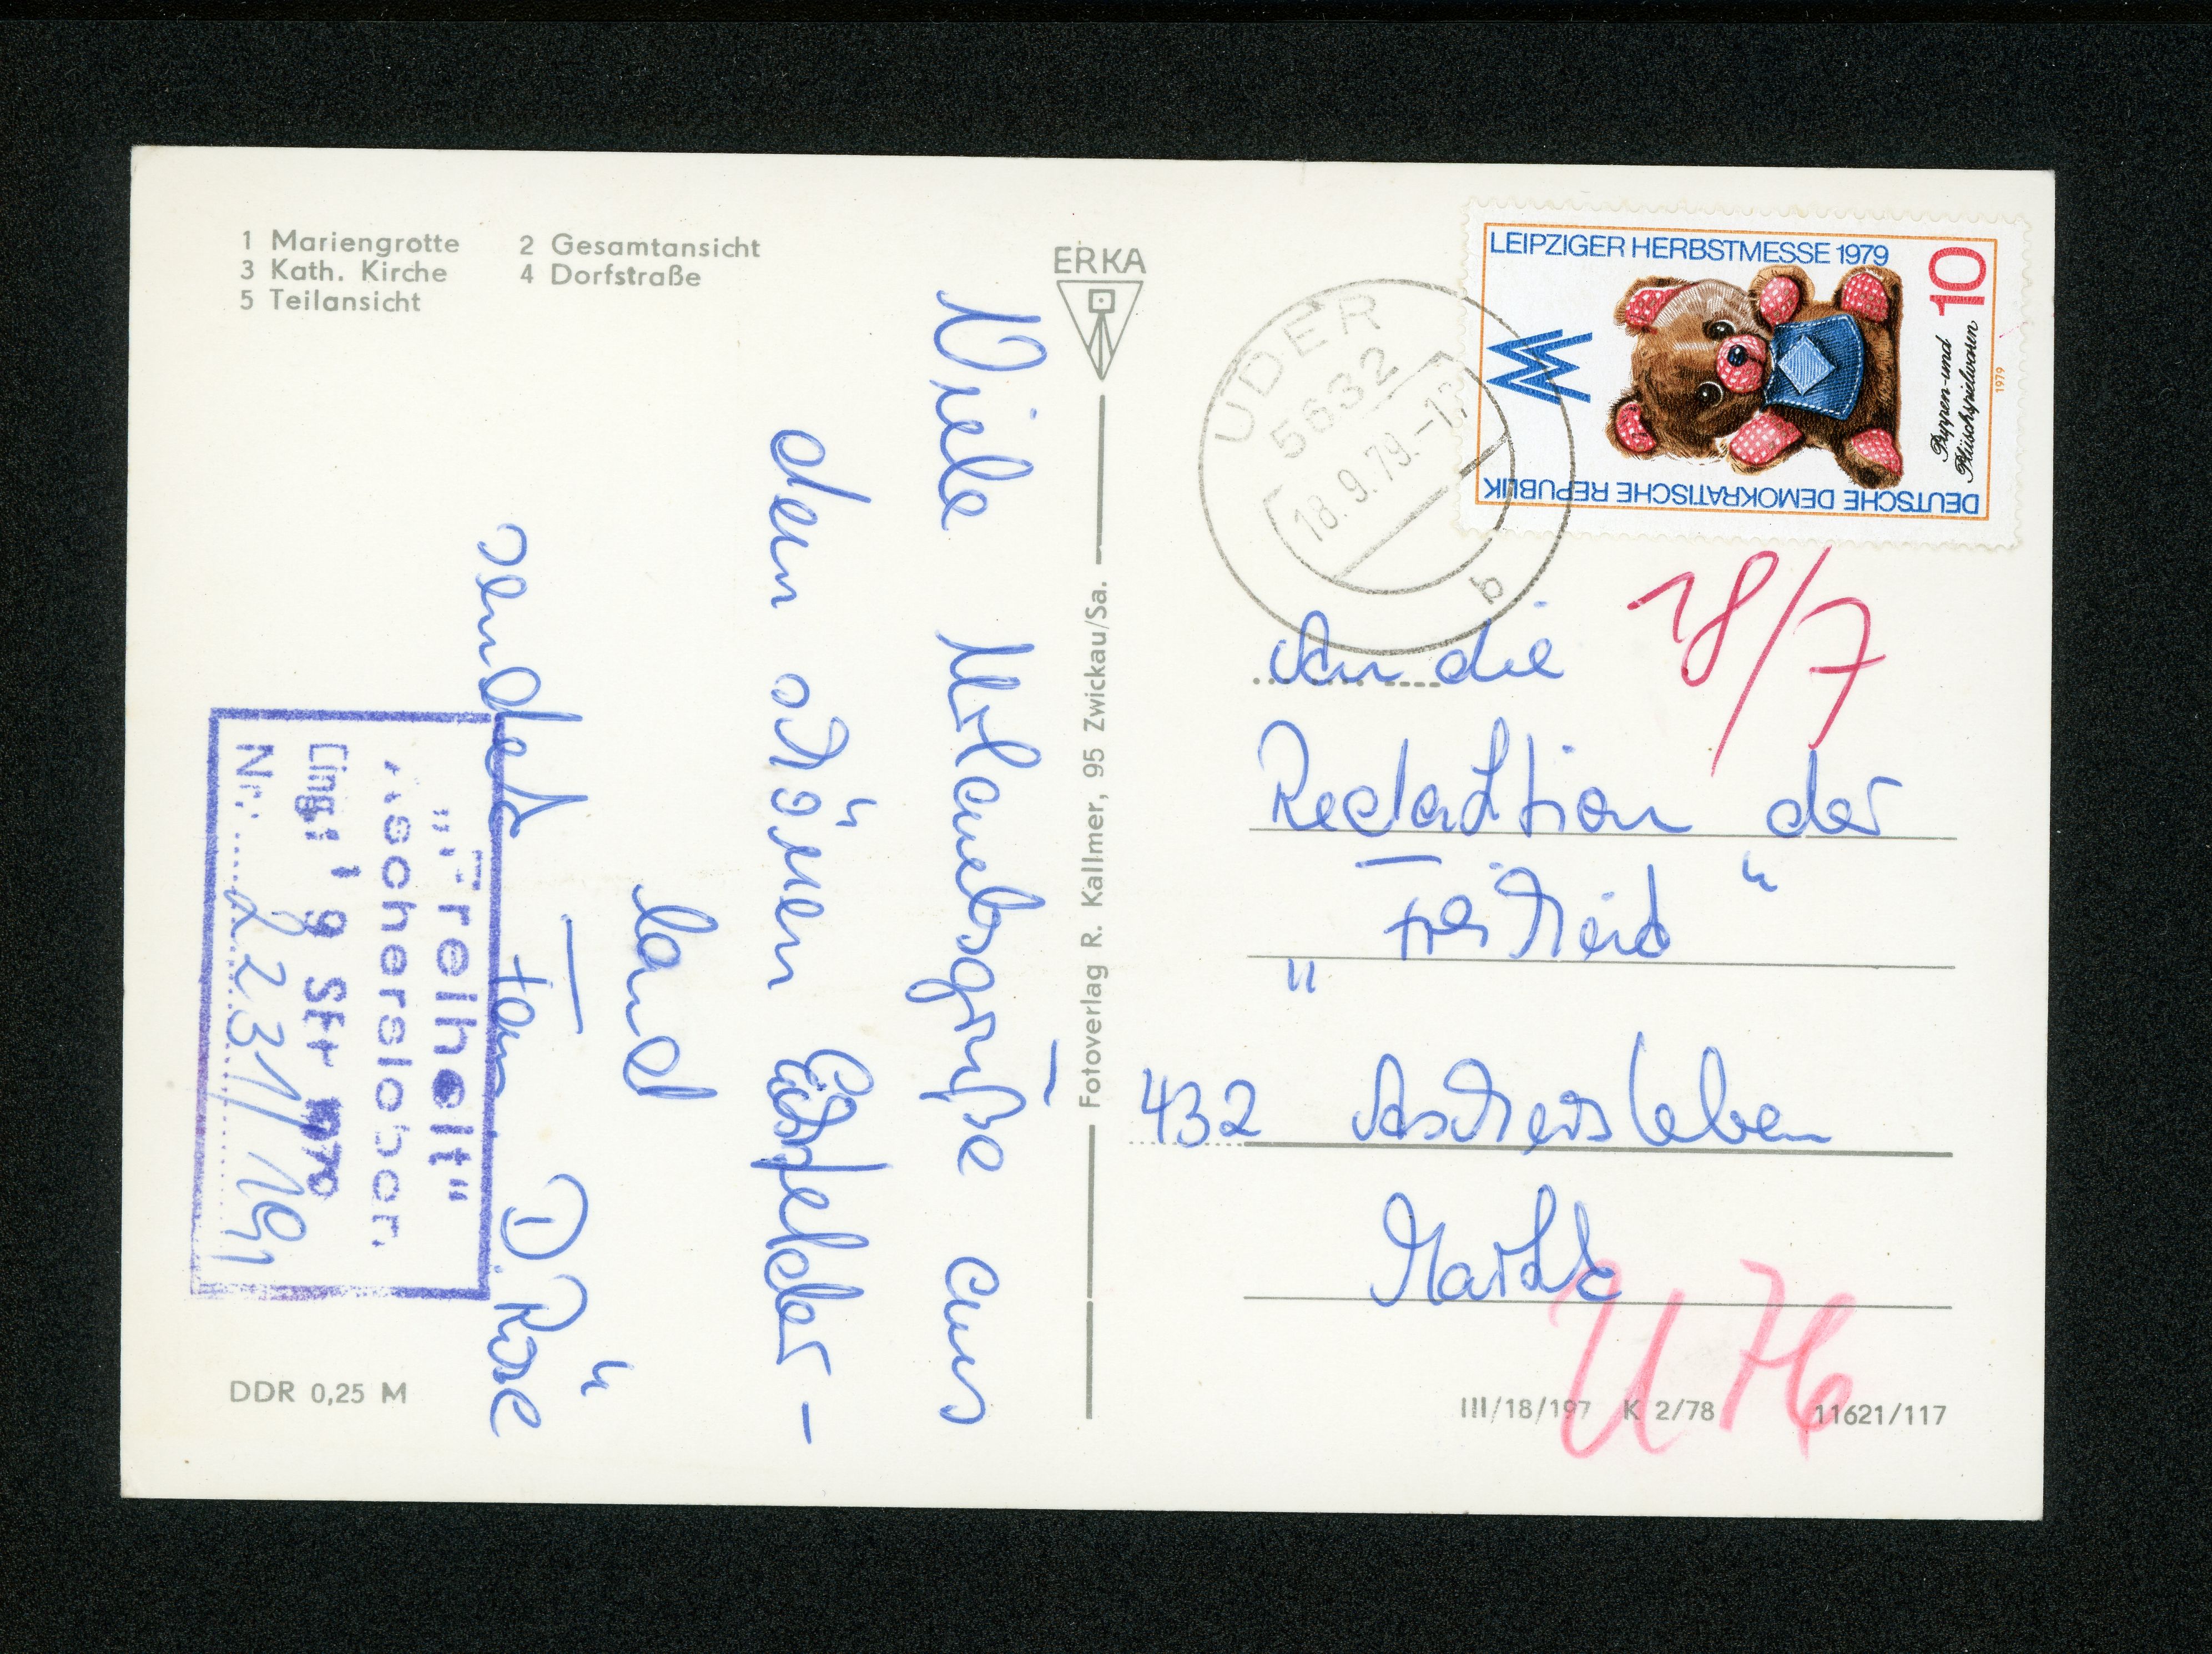 1 Mariengrotte 2 Gesamtansicht
3 Kath. Kirche 4 Dorfstraße
5 Teilansicht
Viele Urlaubsgrüße aus
dem schönen Eichsfelder-
land
sendet Fam. D. Röse
"Freiheit"
Aschersleben
Eing: 19 SEP 1979
Nr.: 2231/191
DDR 0,25 M
ERKA
Fotoverlag R. Kallmer, 95 Zwickau/Sa.
UDER
5632
18.9.79.-17
b
LEIPZIGER HERBSTMESSE 1979
10
Puppen- und
Plüschspielwaren
1979
DEUTSCHE DEMOKRATISCHE REPUBLIK
18/7
An die
Redaktion der
"Freiheid"
432 Aschersleben
Markt
U 76
III/18/197 K 2/78 11621/117